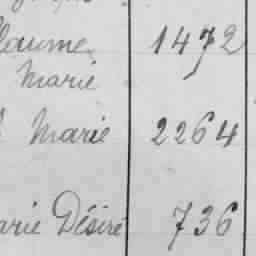 laume 1472
Marie
Marie 2264
arie Désiré 736